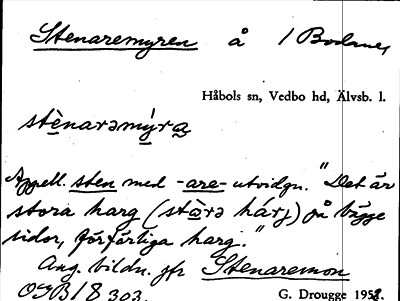 Stenaremyren å / Bodane,
Håbols sn, Vedbo hd, Älvsb. l.
stènarəmýra
Appell. sten med -are- utvidgn. "Det är
stora harg (stòrə hárj) på bägge
sidor, förfärliga harg."
Ang. bildn. jfr Stenaremon
OGB 18 303.
G. Drougge 1958.